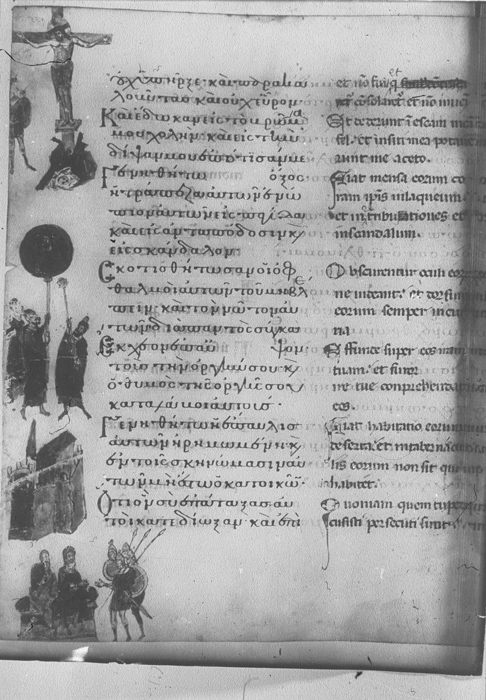 οὐχ ὑπῆρξε· καὶ παρακα
λοῦντας καὶ οὐχ εὗρον
Καὶ ἔδωκαν εἰς τὸ βρῶμα
μου χολὴν καὶ εἰς τὴν
δίψαν μου ἐπότισάν με
Γενηθήτω ὄξος
ἡ τράπεζα αὐτῶν ἐνώ
πιον αὐτῶν εἰς παγίδα
καὶ εἰς ἀνταπόδοσιν κ
εἰς σκάνδαλον
Σκοτισθήτωσαν οἱ ὀφ
θαλμοὶ αὐτῶν τοῦ μὴ βλέ
πειν καὶ τὸν νῶτον αὐ
τῶν διαπαντὸς σύγκα
Ἔκχεον ἐπ αὐ ψον
τοὺς τὴν ὀργήν σου κ
ὁ θυμὸς τῆς ὀργῆς σου
καταλάβοι αὐτούς
Γενηθήτω ἡ ἔπαυλις
αὐτῶν ἠρημωμένη κ
ἐν τοῖς σκηνώμασιν αὐ
τῶν μὴ ἔστω ὁ κατοικῶ
Ὅτι ὃν σὺ ἐπάταξας αὐ
τοὶ κατεδίωξαν καὶ ἐπὶ
et nō fuit et
et nō
Et dederunt in escam
fel et in siti mea
uerunt me aceto.
Fiat mensa eorum co
ram ipsis in laqueum
et in retributiones et
in scandalum.
Obscurentur oculi eorum
ne uideant et dorsum
eorum semper incur
ua
Effunde super eos iram
tuam et furor
ire tue conprehendat
eos.
Fiat habitatio eorum
deserta et in tabernaculis
lis eorum non sit qui in
habitet.
Quoniam quem tu per
cussisti persecuti sunt